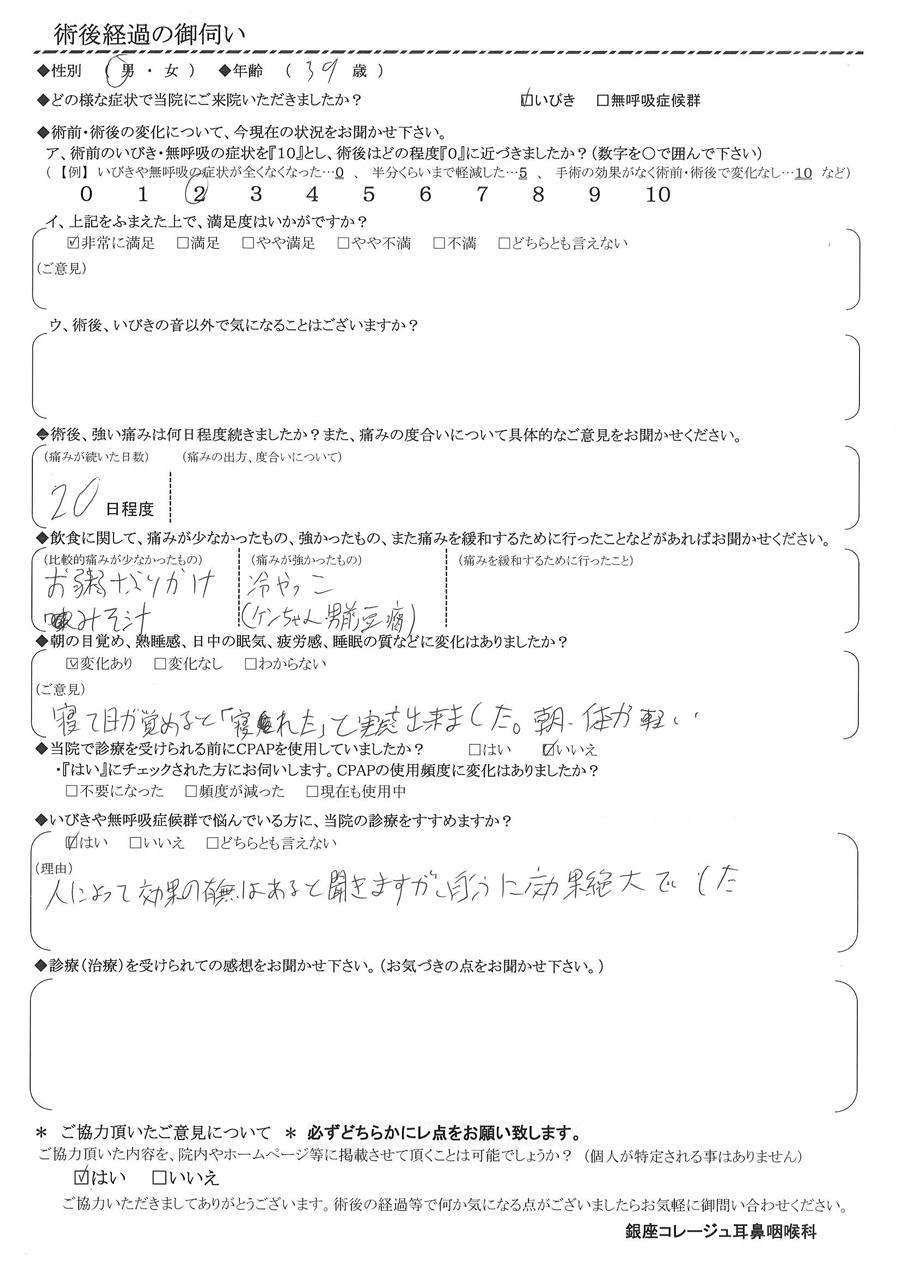 術後経過の御伺い
◆性別 （ 男 ・ 女 ） ◆年齢 （ 39 歳 ）
◆どの様な症状で当院にご来院いただきましたか？ ☑いびき □無呼吸症候群
◆術前・術後の変化について、今現在の状況をお聞かせ下さい。
ア、術前のいびき・無呼吸の症状を『10』とし、術後はどの程度『0』に近づきましたか？（数字を〇で囲んで下さい）
（【例】いびきや無呼吸の症状が全くなくなった…0 、 半分くらいまで軽減した…5 、 手術の効果がなく術前・術後で変化なし…10 など）
0 1 2 3 4 5 6 7 8 9 10
イ、上記をふまえた上で、満足度はいかがですか？
☑非常に満足 □満足 □やや満足 □やや不満 □不満 □どちらとも言えない
（ご意見）
ウ、術後、いびきの音以外で気になることはございますか？
◆術後、強い痛みは何日程度続きましたか？また、痛みの度合いについて具体的なご意見をお聞かせください。
（痛みが続いた日数） （痛みの出方、度合いについて）
20 日程度
◆飲食に関して、痛みが少なかったもの、強かったもの、また痛みを緩和するために行ったことなどがあればお聞かせください。
（比較的痛みが少なかったもの） （痛みが強かったもの） （痛みを緩和するために行ったこと）
お粥 冷やっこ
みそ汁 （ケンちゃん男前豆腐）
◆朝の目覚め、熟睡感、日中の眠気、疲労感、睡眠の質などに変化はありましたか？
☑変化あり □変化なし □わからない
（ご意見）
寝て目が覚めると「寝れた」と実感出来ました。朝、体が軽い
◆当院で診療を受けられる前にCPAPを使用していましたか？ □はい ☑いいえ
・『はい』にチェックされた方にお伺いします。CPAPの使用頻度に変化はありましたか？
□不要になった □頻度が減った □現在も使用中
◆いびきや無呼吸症候群で悩んでいる方に、当院の診療をすすめますか？
☑はい □いいえ □どちらとも言えない
（理由）
人によって効果の有無はあると聞きますが、自分に効果絶大でした
◆診療（治療）を受けられての感想をお聞かせ下さい。（お気づきの点をお聞かせ下さい。）
＊ ご協力頂いたご意見について ＊ 必ずどちらかにレ点をお願い致します。
ご協力頂いた内容を、院内やホームページ等に掲載させて頂くことは可能でしょうか？ （個人が特定される事はありません）
☑はい □いいえ
ご協力いただきましてありがとうございます。術後の経過等で何か気になる点がございましたらお気軽に御問い合わせください。
銀座コレージュ耳鼻咽喉科